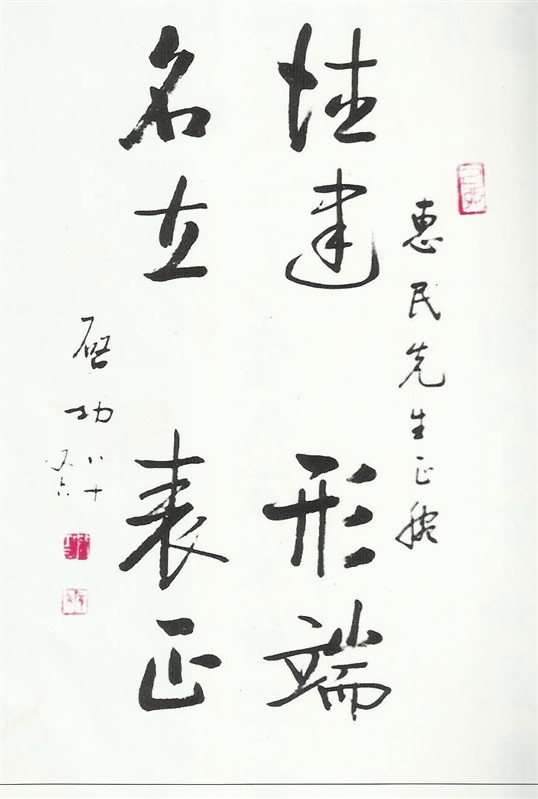 惠民先生正腕
德建
名立
形端
表正
启功
八十
又六